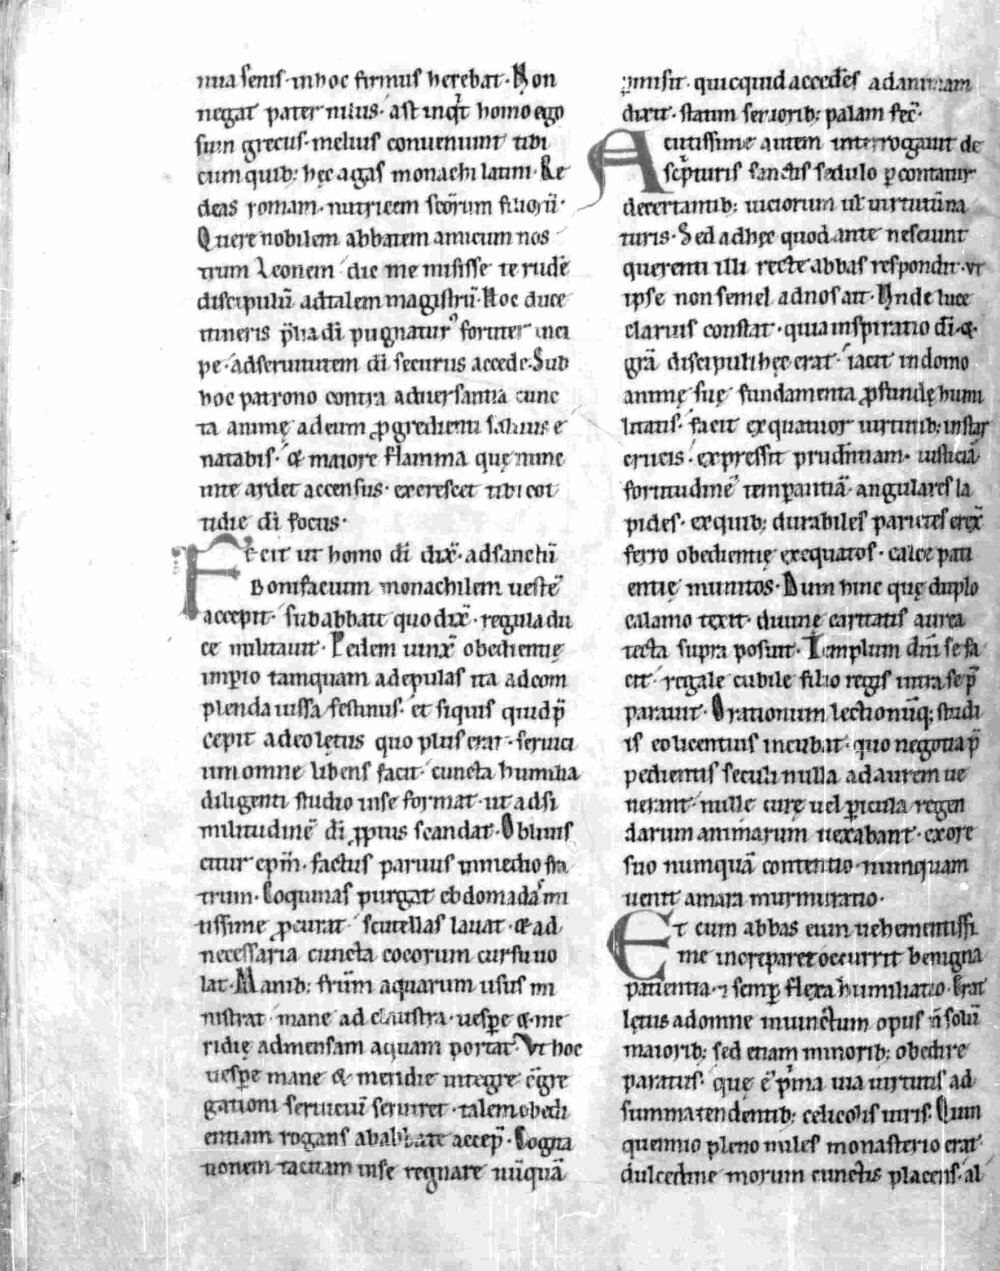 nua senis· in hoc firmus herebat· Non
negat pater nilus· ast inqͥt homo ego
sum grecus· melius conueniunt tibi
cum quib; hęc agas monachi latini· Re
deas romam· nutricem scōrum filioꝝ·
Quere nobilem abbatem amicum nos
trum Leonem dic me misisse te rudē
discipulū ad talem magistrū· Hoc duce
itineris p̄lia dī pugnatur fortiter inci
pe· ad seruitutem dī securus accede· Sub
hoc patrono contra aduersantia cunc
ta animę ad eum ꝓgredienti saluus e
natabis· & maiore flamma quę nunc
in te ardet accensus· excrescet tibi cot
tidie dī focus·
Fecit ut homo dī dix̄· ad sanctū
Bonifacium monachilem uestē
accepit· sub abbate quo dix̄· regula du
ce militauit· Pedem uinx̄ obedientię
imꝑio tamquam ad epulas ita ad com
plenda iussa festinus· et siquis quid p̄
cepit adeo lętus quo plus erat· serui ci
ui omne libens facit· cuncta humilia
diligenti studio in se format· ut ad si
militudinē dī ꝓpius scandat· Obliuis
citur epm̄· factus paruus in medio fra
trum· Coquinas purgat ebdomadā mi
tissime ꝓcurat· scutellas lauat· & ad
necessaria cuncta cocorum cursu uo
lat· Manib; frūm aquarum usus mi
nistrat· mane ad claustra· uesꝑe & me
ridię ad mensam aquam portat· Vt hoc
uesꝑe mane & meridie integre c̄gre
gationi seruiciū seruiret· talem obedi
entiam rogans ab abbate accep̄· Cogna
tionem tacitam in se regnare nūquā
ꝑmisit· quicquid accedēs ad animam
dixit· statim seniorib; palam fec̄·
Acutissime autem interrogauit de
scͥpturis sanctis sedulo ꝑcontatur
decertantib; uiciorum ut uirtutū na
turis· Sed adhęc quod ante nesciunt
querenti illi recte abbas respondit· ut
ipse non semel ad nos ait· Vnde luce
clarius constat· quia inspiratio dī &
grā discipuli hęc erat· iacit in domo
animę suę fundamenta ꝓfundę humi
litatis· facit ex quatuor uirtutib; instar
crucis· expressit prudentiam· iusticiā·
fortitudinē temperantiā· angulares la
pides· ex quib; durabiles parietes erex̄
ferro obedientię exequatos· calce pati
entię munitos· Dum hinc quę duplo
calamo texit· diuinę caritatis aurea
tecta supra posuit· Templum dn̄i se fa
cit· regale cubile filio regis intra se p̄
parauit· Orationum lectionūq; studi
is eo licentius incubat· quo negotia p̄
pedientis seculi nulla ad aurem ue
nerant· nulle curę uel ꝑicula regen
darum animarum uexabant· ex ore
suo numquā contentio· nunquam
uenit amara murmuratio·
Et cum abbas eum uehementissi
me increparet occurrit benigna
patientia· ⁊ semꝑ flexa humiliatio· Erat
lętus ad omne iniunctum opus n̄ solū
maiorib; sed etiam minorib; obedire
paratus· quę ē pͥma uia uirtutis ad
summa tendentib; celicolis uiris· Quin
quennio pleno miles monasterio erat
dulcedine morum cunctis placens· al